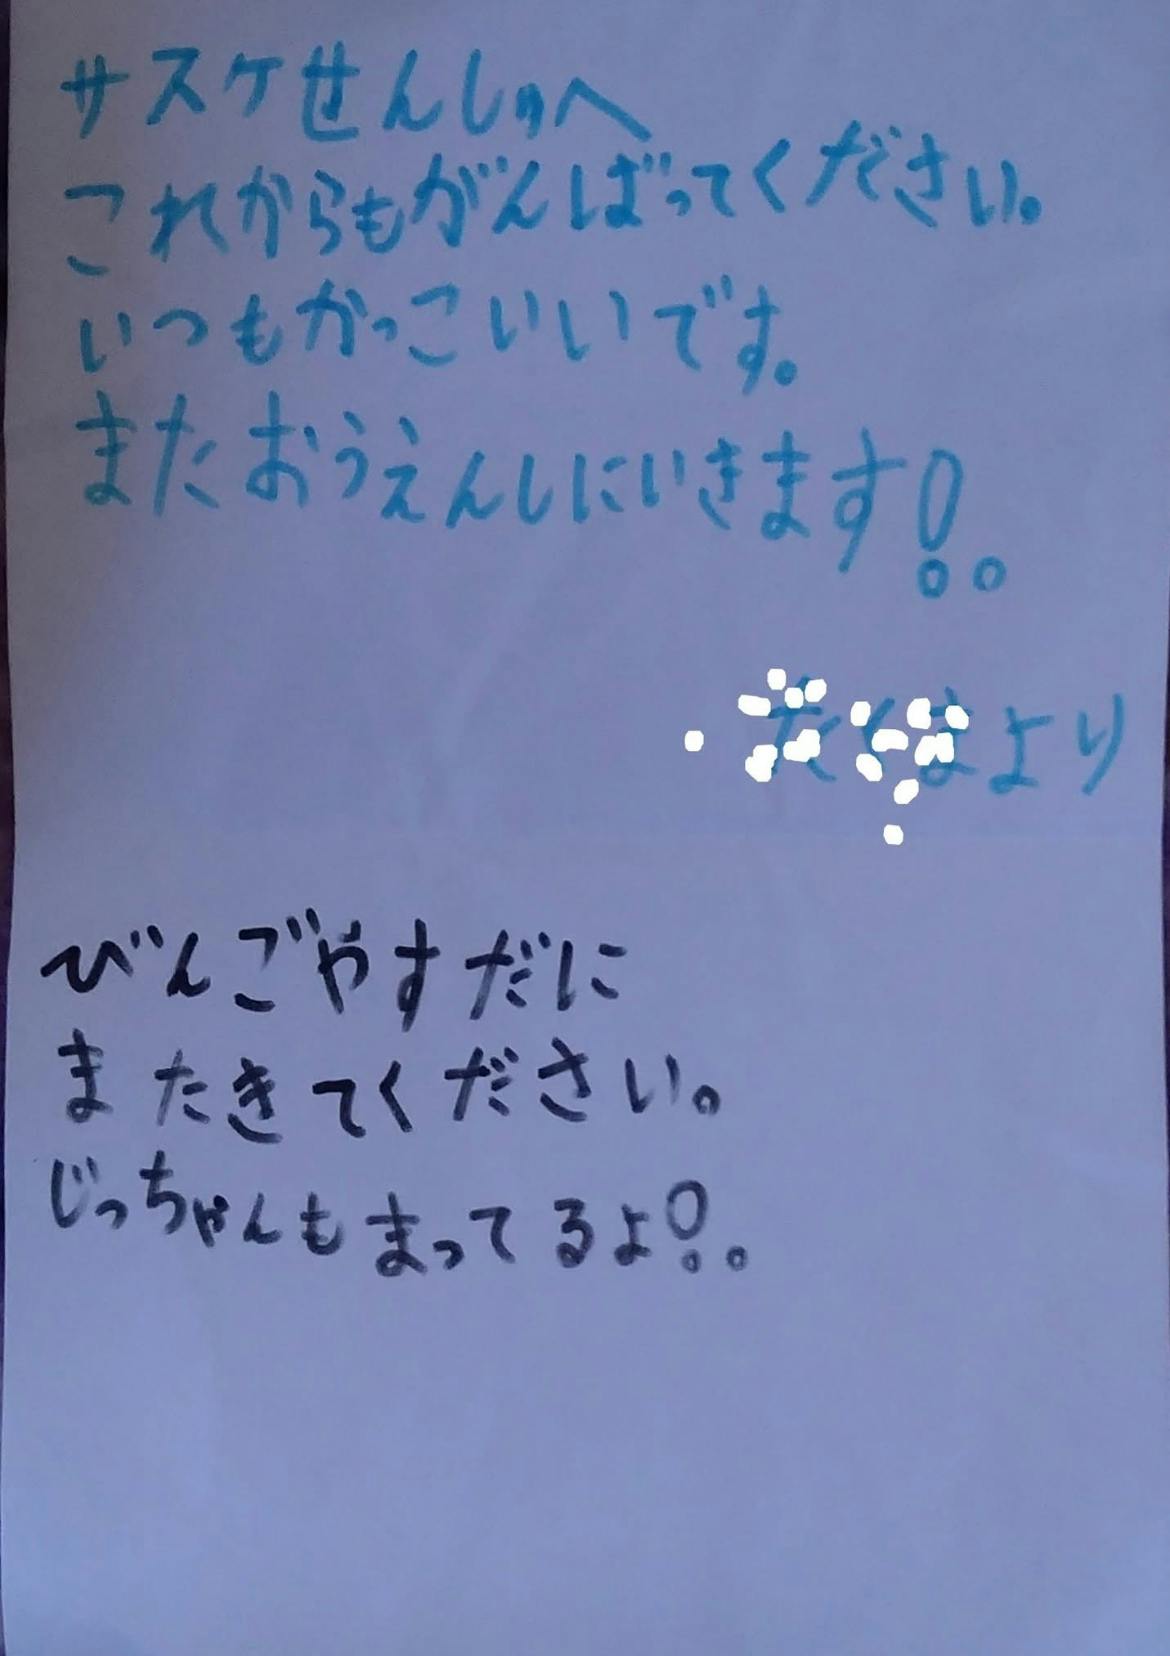 サスケせんしゅへ
これからもがんばってください。
いつもかっこいいです。
またおうえんしにいきます!。
より
びんごやすだに
またきてください。
じっちゃんもまってるよ!。